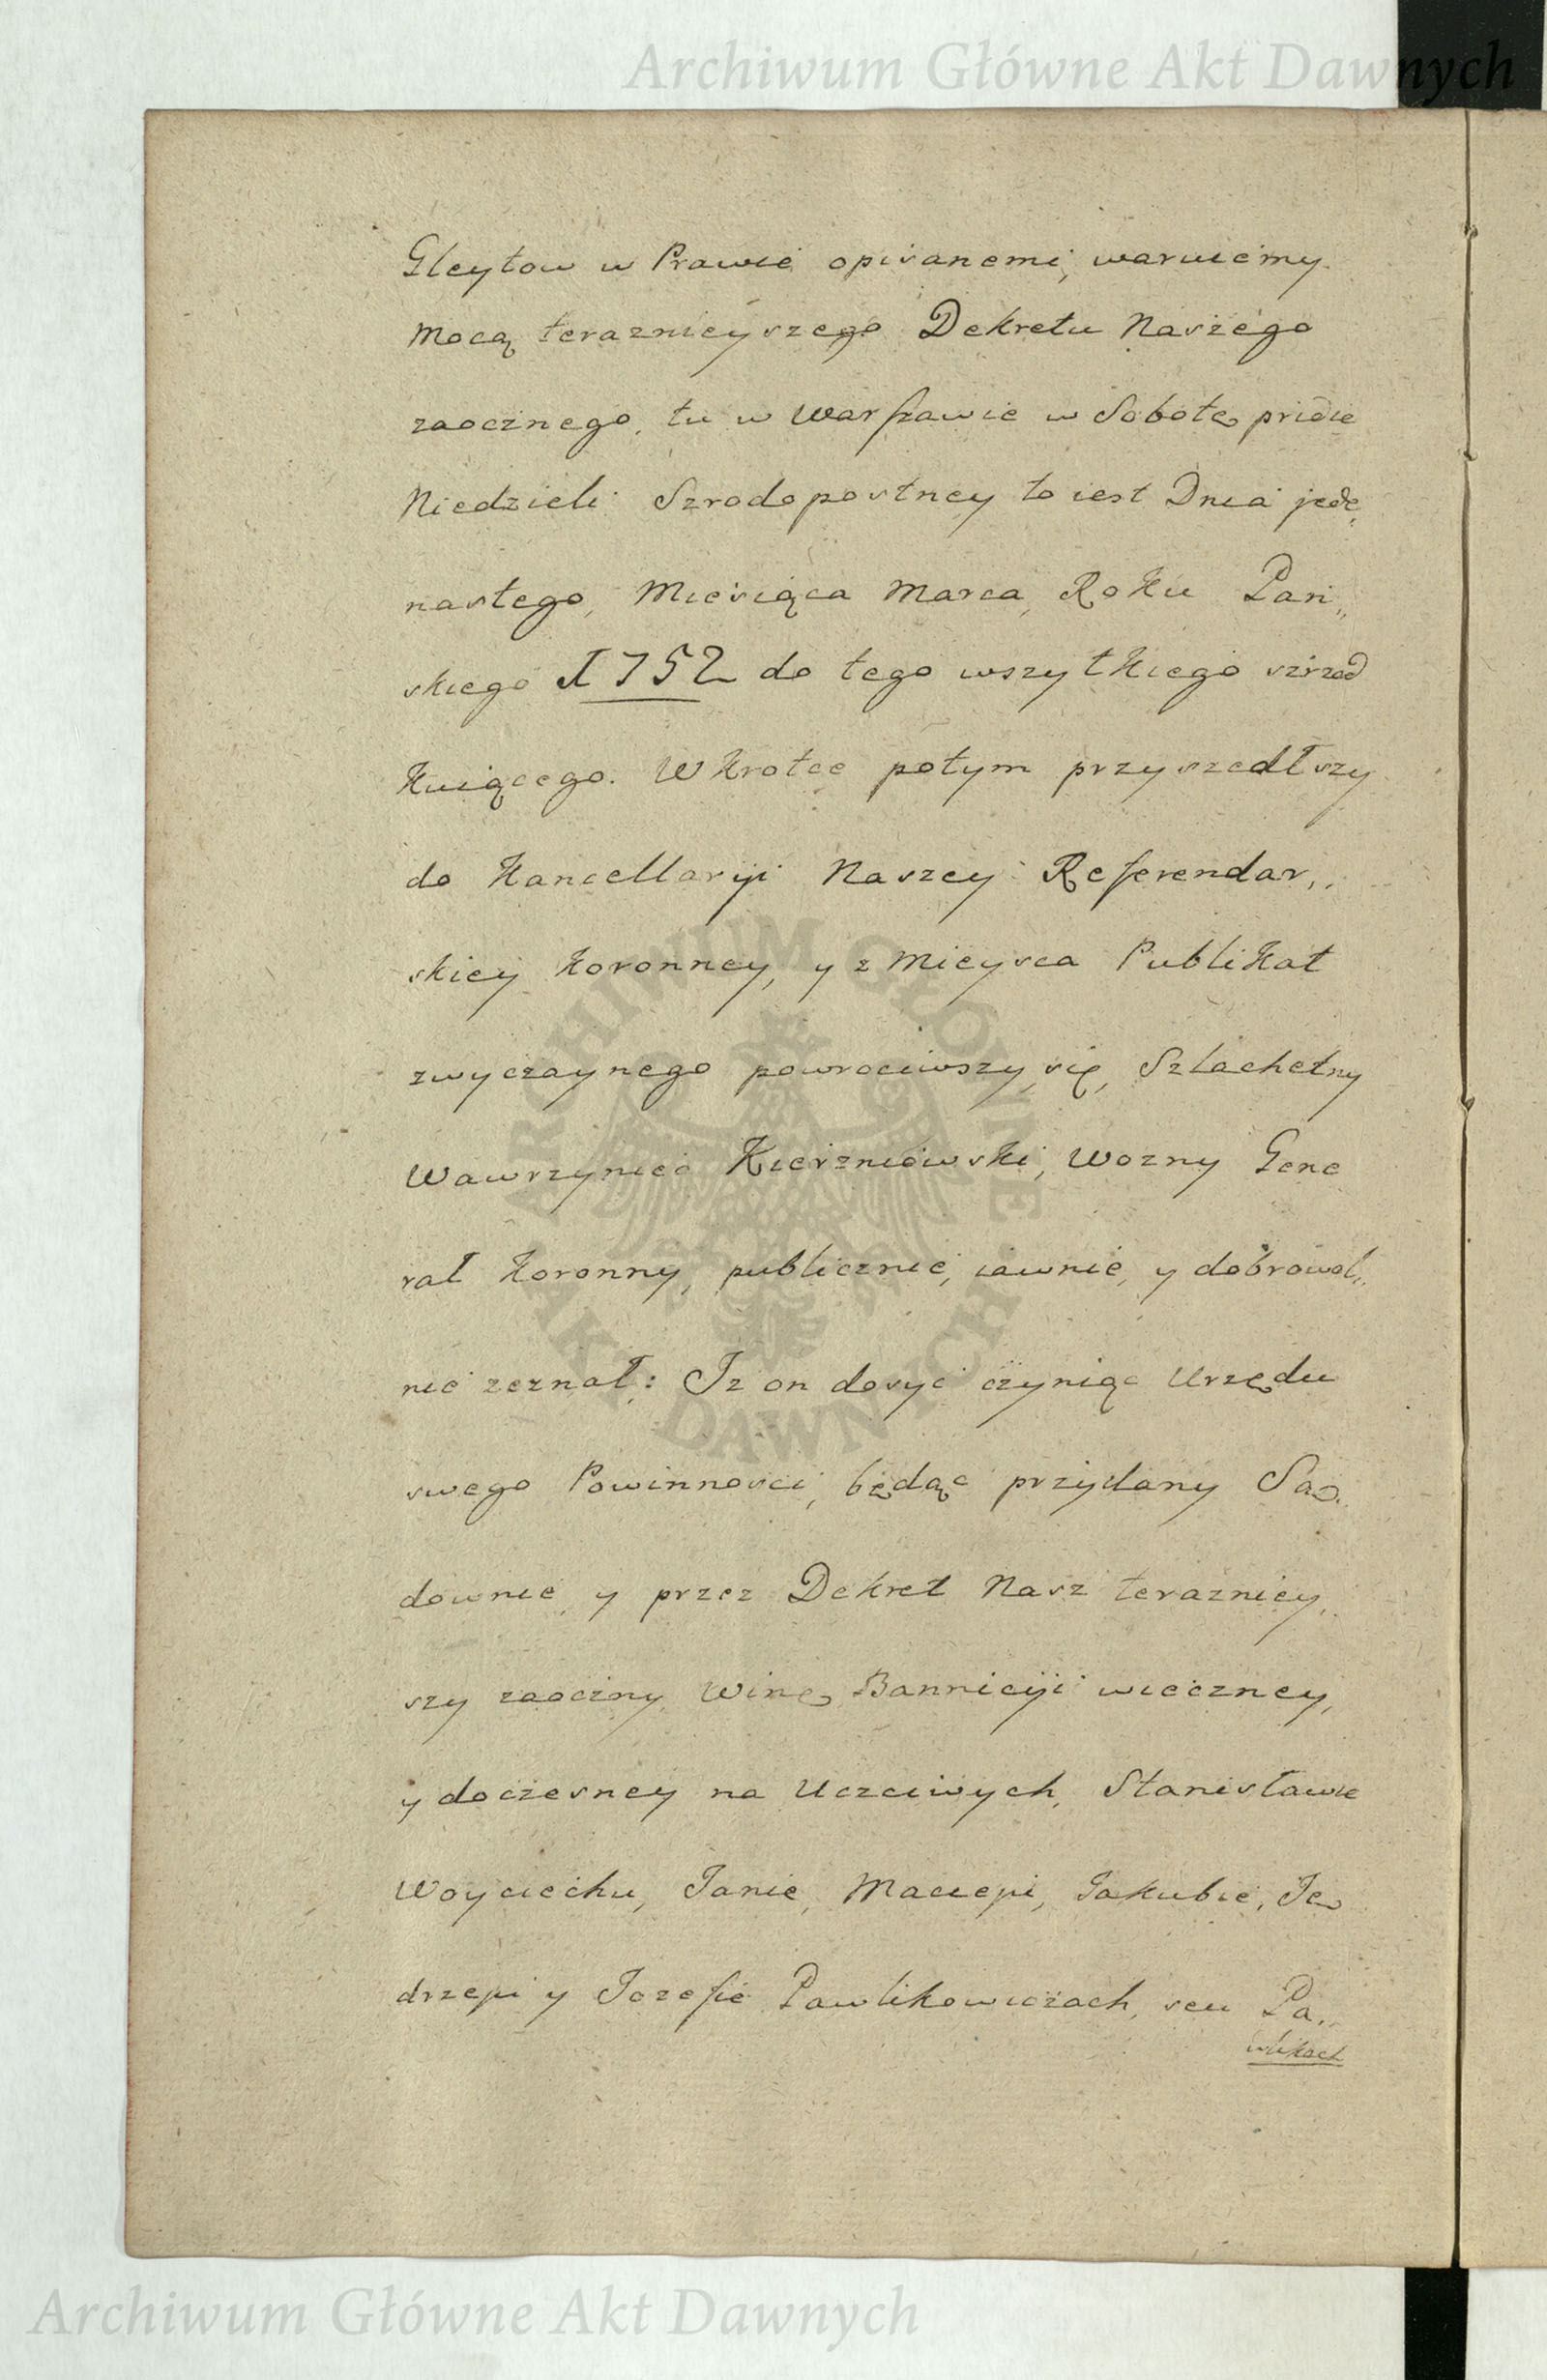 Archiwum Główne Akt Dawnych
Gleytow w Prawie opisanemi, waruiemy.
Mocą teraznieyszego Dekretu Naszego
zaocznego, tu w Warszawie w Sobotę pridie
Niedzieli Szrodopostney to iest Dnia jede,
nastego, Miesiąca Marca, Roku Pań„
skiego 1752 do tego wszytkiego
Wkrotce potym przyszedłszy
do Kancellaryi Naszey Referendar„
skiey Koronney, y z Mieysca Publikat
zwyczaynego powrociwszy się, Szlachetny
Wawrzyniec Kierzniowski, Wozny Gene
rał Koronny, publicznie, iawnie, y dobrowol„
nie zeznał: Iz on dosyc czyniąc Urzędu
swego Powinnosci, będąc przydany Są„
downie, y przez Dekret Nasz terazniey„
szy zaoczny, Winę Bannicyi wieczney,
y doczesney na Uczciwych, Stanisławie
Woyciechu, Janie, Macieju, Jakubie, Ję
drzeju y Jozefie Pawlikowiczach, seu Pa„
wlikach
ARCHIWUM GŁÓWNE AKT DAWNYCH
Archiwum Główne Akt Dawnych